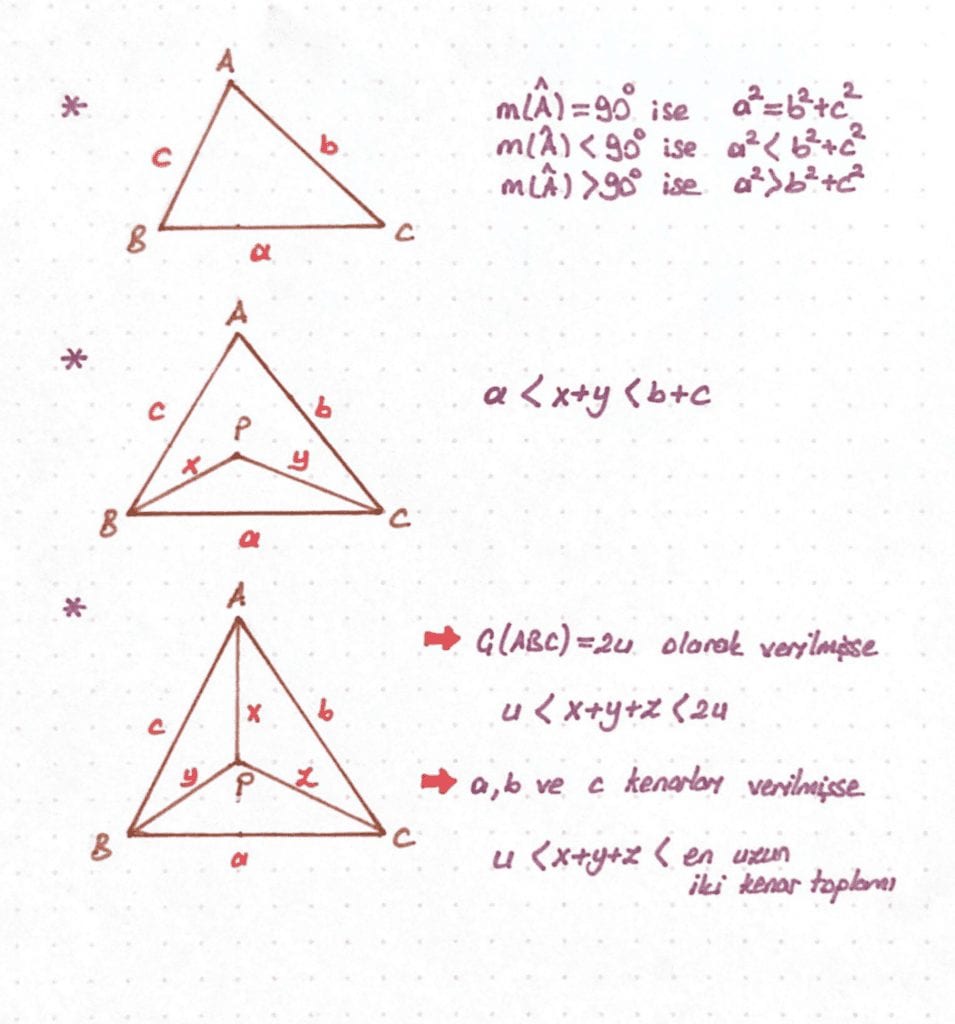 *
A
c
b
B
a
C
m(Â)=90° ise a²=b²+c²
m(Â)<90° ise a²<b²+c²
m(Â)>90° ise a²>b²+c²
*
A
c
b
P
x
y
B
a
C
a<x+y<b+c
*
A
c
x
b
y
P
z
B
a
C
➡ Ç(ABC)=2u olarak verilmişse
u<x+y+z<2u
➡ a,b ve c kenarları verilmişse
u<x+y+z< en uzun
iki kenar toplamı